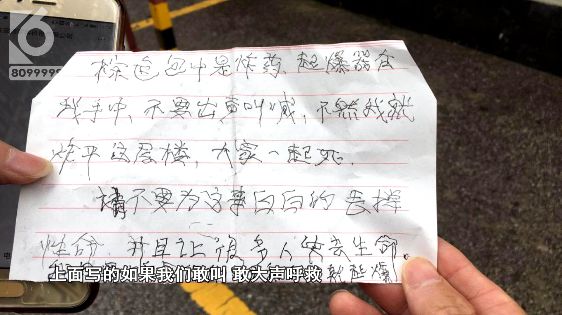 8099999
棕色包中是炸药、起爆器在
我手中,不要出声叫喊,不然我就
炸平这层楼,大家一起死.
请不要为这事白白的丢掉
性命 并且让很多人失去生命。
上面写的如果我们敢叫 敢大声呼救
就起爆